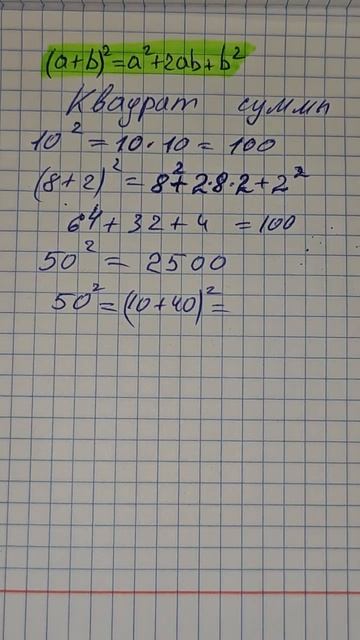 (a+b)²=a²+2ab+b²
Квадрат суммы
10²=10·10=100
(8+2)²=8²+2·8·2+2²
64+32+4=100
50²=2500
50²=(10+40)²=